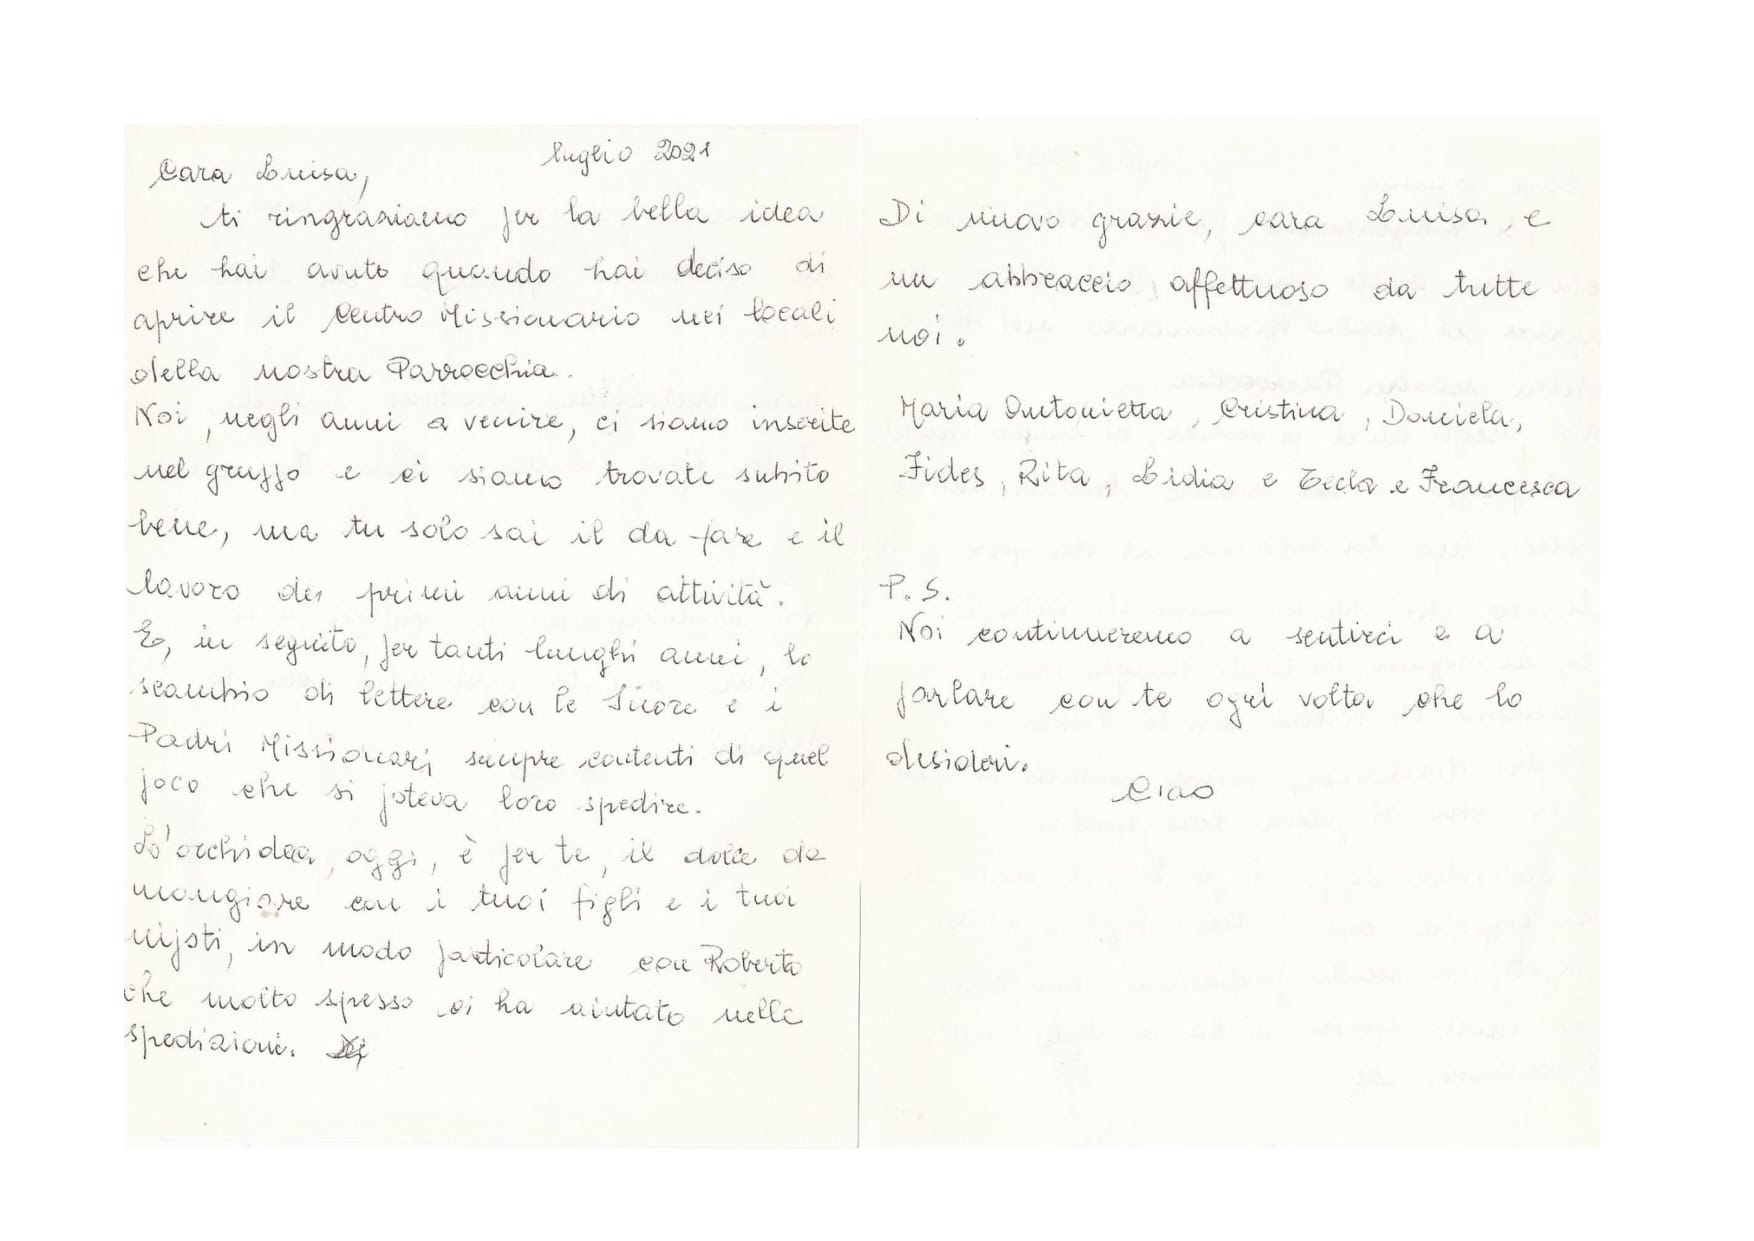 luglio 2021
Cara Luisa,
ti ringraziamo per la bella idea
che hai avuto quando hai deciso di
aprire il Centro Missionario nei locali
della nostra Parrocchia.
Noi, negli anni a venire, ci siamo inserite
nel gruppo e ci siamo trovate subito
bene, ma tu solo sai il da fare e il
lavoro dei primi anni di attività.
E, in seguito, per tanti lunghi anni, lo
scambio di lettere con le Suore e i
Padri Missionari, sempre contenti di quel
poco che si poteva loro spedire.
L'orchidea, oggi, è per te, il dolce da
mangiare con i tuoi figli e i tuoi
nipoti, in modo particolare con Roberto
che molto spesso ci ha aiutato nelle
spedizioni.
Di nuovo grazie, cara Luisa, e
un abbraccio affettuoso da tutte
noi.
Maria Antonietta, Cristina, Daniela,
Fides, Rita, Lidia e Tecla e Francesca
P.S.
Noi continueremo a sentirci e a
parlare con te ogni volta che lo
desideri.
Ciao